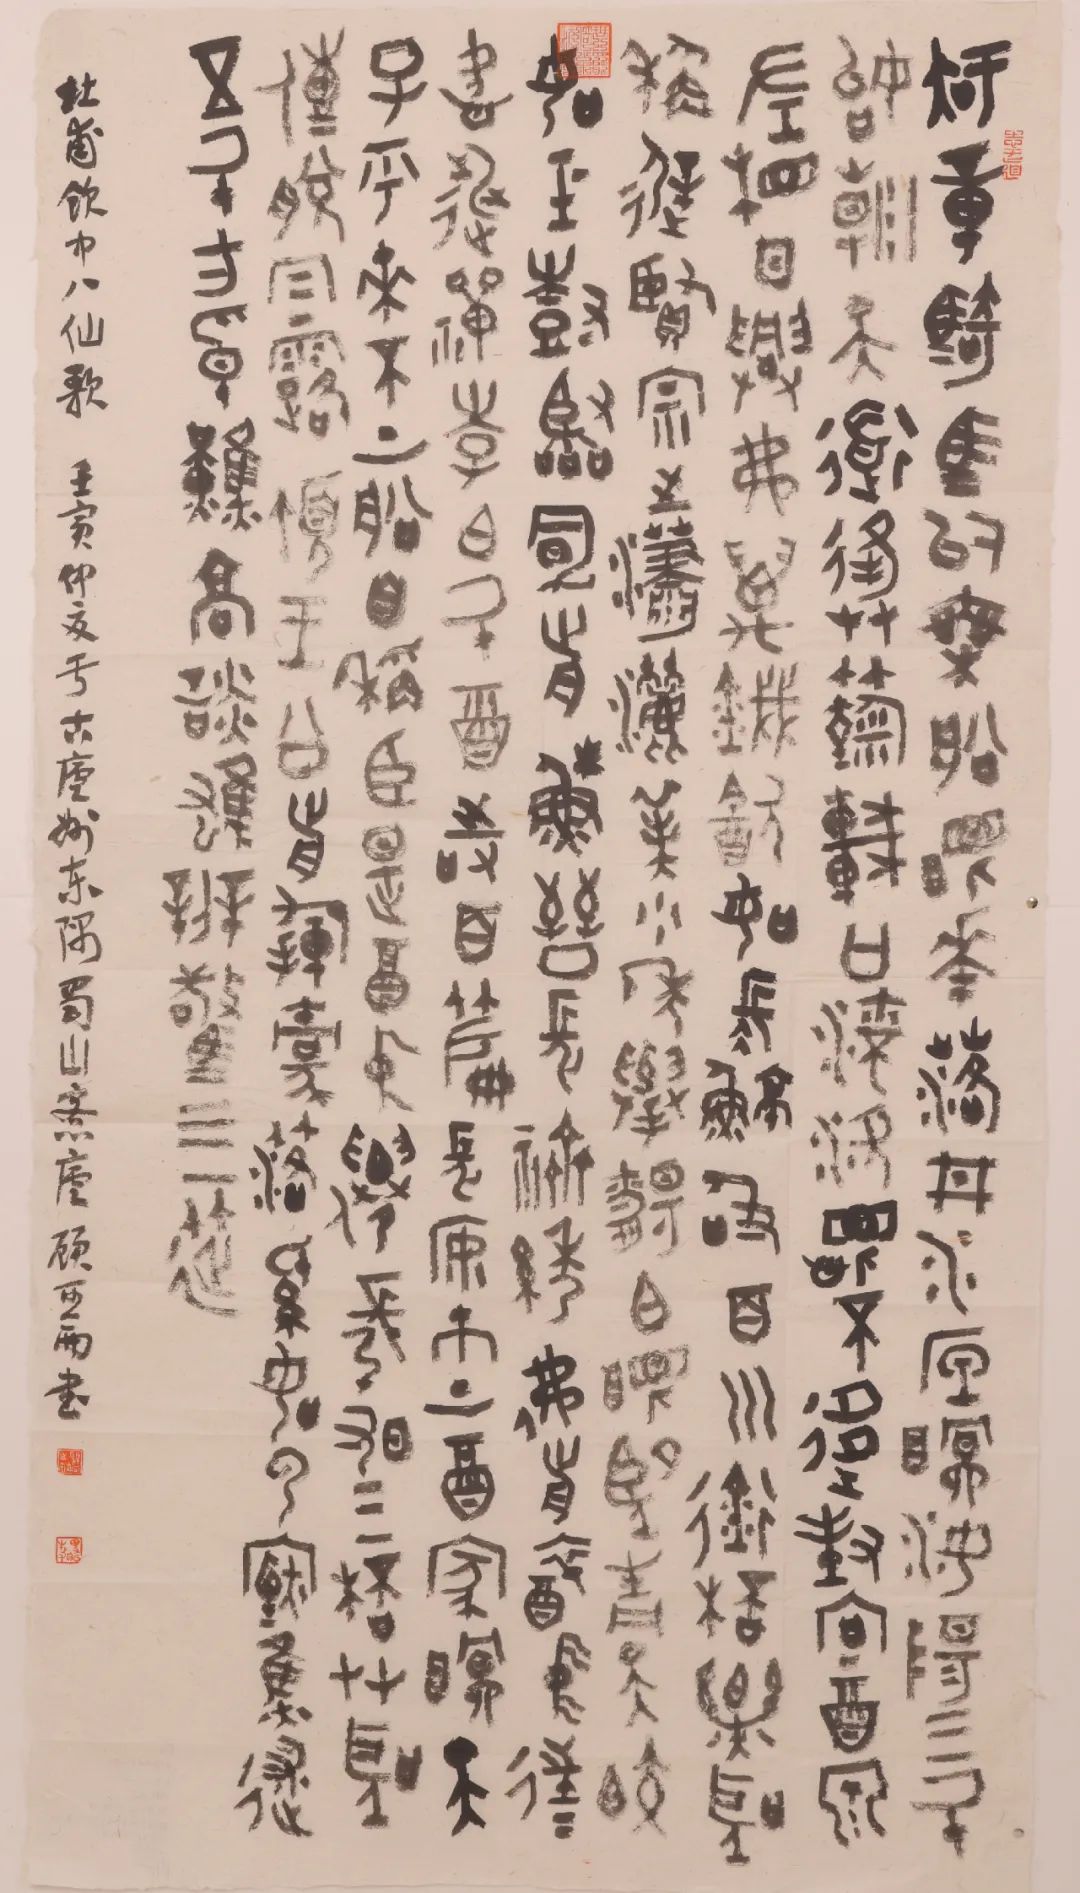 知章騎馬似乘船眼花落井水底眠汝陽三斗
始朝天道逢麴車口流涎恨不移封向酒泉
左相日興費萬錢飲如長鯨吸百川銜杯樂聖
稱避賢宗之瀟灑美少年舉觴白眼望青天皎
如玉樹臨風前蘇晉長齋繡佛前醉中往往
愛逃禪李白斗酒詩百篇長安市上酒家眠天
子呼來不上船自稱臣是酒中仙張旭三杯草聖
傳脫帽露頂王公前揮毫落紙如雲煙焦遂
五斗方卓然高談雄辯驚四筵
杜甫飲中八仙歌 壬寅仲夏于古廬州東隅蜀山 廬 顧亞 書